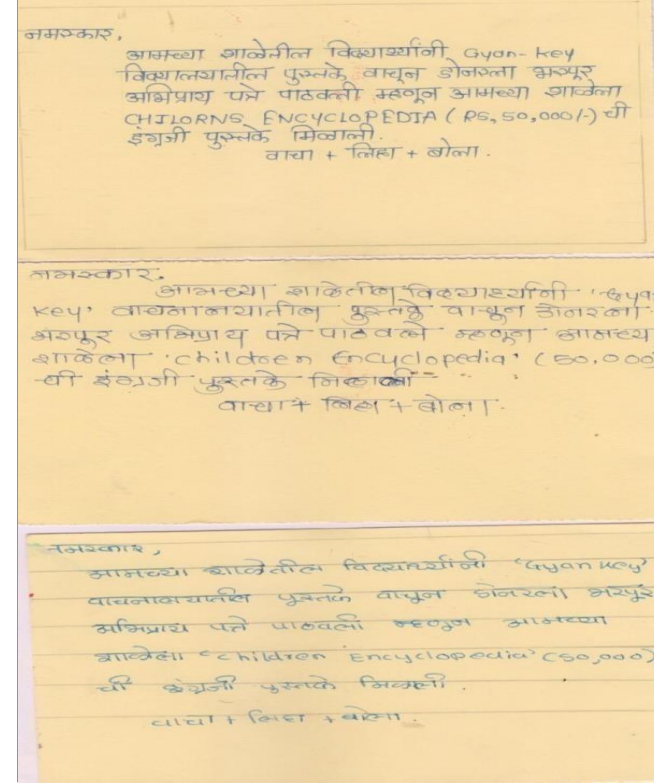 नमस्कार,
आमच्या शाळेतील विद्यार्थ्यांनी Gyan-Key
विद्यालयातील पुस्तके वाचून डोनरला भरपूर
अभिप्राय पत्रे पाठवली म्हणून आमच्या शाळेला
CHILORNS ENCYCLOPEDIA (RS, 50,000/-) ची
इंग्रजी पुस्तके मिळाली.
वाचा + लिहा + बोला.
नमस्कार.
आमच्या शाळेतील विद्यार्थ्यांनी 'Gyan
Key' वाचनालयातील पुस्तके वाचून डोनरला
भरपूर अभिप्राय पत्रे पाठवले म्हणून आमच्य
शाळेला 'children Encyclopedia' (50,000)
ची इंग्रजी पुस्तके मिळाली
वाचा + लिहा + बोला.
नमस्कार,
आमच्या शाळेतील विद्यार्थ्यांनी 'Gyan Key'
वाचनालयातील पुस्तके वाचून डोनरला भरपूर
अभिप्राय पत्रे पाठवली म्हणून आमच्या
शाळेला 'children Encyclopedia' (50,000)
ची इंग्रजी पुस्तके मिळाली.
वाचा + लिहा + बोला.